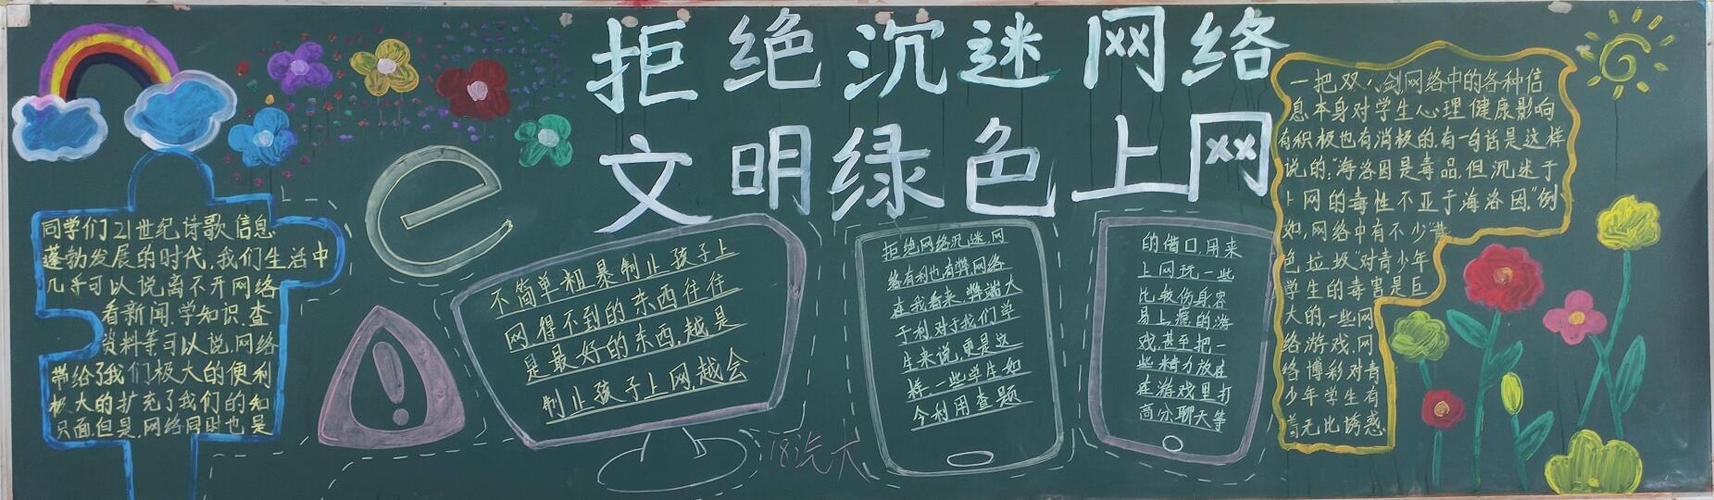 拒绝沉迷网络
文明绿色上网
同学们21世纪诗歌信息
蓬勃发展的时代,我们生活中
几乎可以说离不开网络
看新闻,学知识,查
资料等可以说,网络
带给了我们极大的便利
极大的扩充了我们的知
只面但是,网络同时也是
e
不简单粗暴制止孩子上
网,得不到的东西往往
是最好的东西,越是
制止孩子上网,越会
18汽大
拒绝网络沉迷,网
络有利也有弊,网络
在我看来,弊端大
于利,对于我们学
生来说,更是这
样,一些学生如
今利用查题
的借口,用来
上网玩一些
比较伤身容
易上瘾的游
戏,甚至把一
些精力放在
在游戏里打
首分聊天等
一把双剑网络中的各种信
息本身对学生心理健康影响
有积极也有消极的,有一句话是这样
说的:“海洛因是毒品,但沉迷于
上网的毒性不亚于海洛因,”例
如,网络中有不少“黄
色垃圾”对青少年
学生的毒害是巨
大的,一些网
络游戏,网
络博彩对青
少年学生有
着无比诱惑